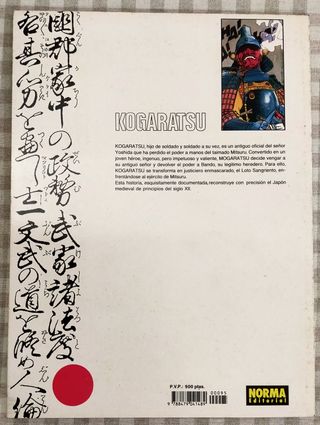 國郡家中の政務武家諸法度
文武の道を修め人倫
KOGARATSU
KOGARATSU, hijo de soldado y soldado a su vez, es un antiguo oficial del señor
Yoshida que ha perdido el poder a manos del taimado Mitsuru. Convertido en un
joven héroe, ingenuo, pero impetuoso y valiente, MOGARATSU decide vengar a
su antiguo señor y devolver el poder a Bando, su legítimo heredero. Para ello,
KOGARATSU se transforma en justiciero enmascarado, el Loto Sangriento, en-
frentándose al ejército de Mitsuru.
Esta historia, exquisitamente documentada, reconstruye con precisión el Japón
medieval de principios del siglo XII.
P.V.P.: 900 ptas.
00095
9 788479 041489
NORMA
Editorial